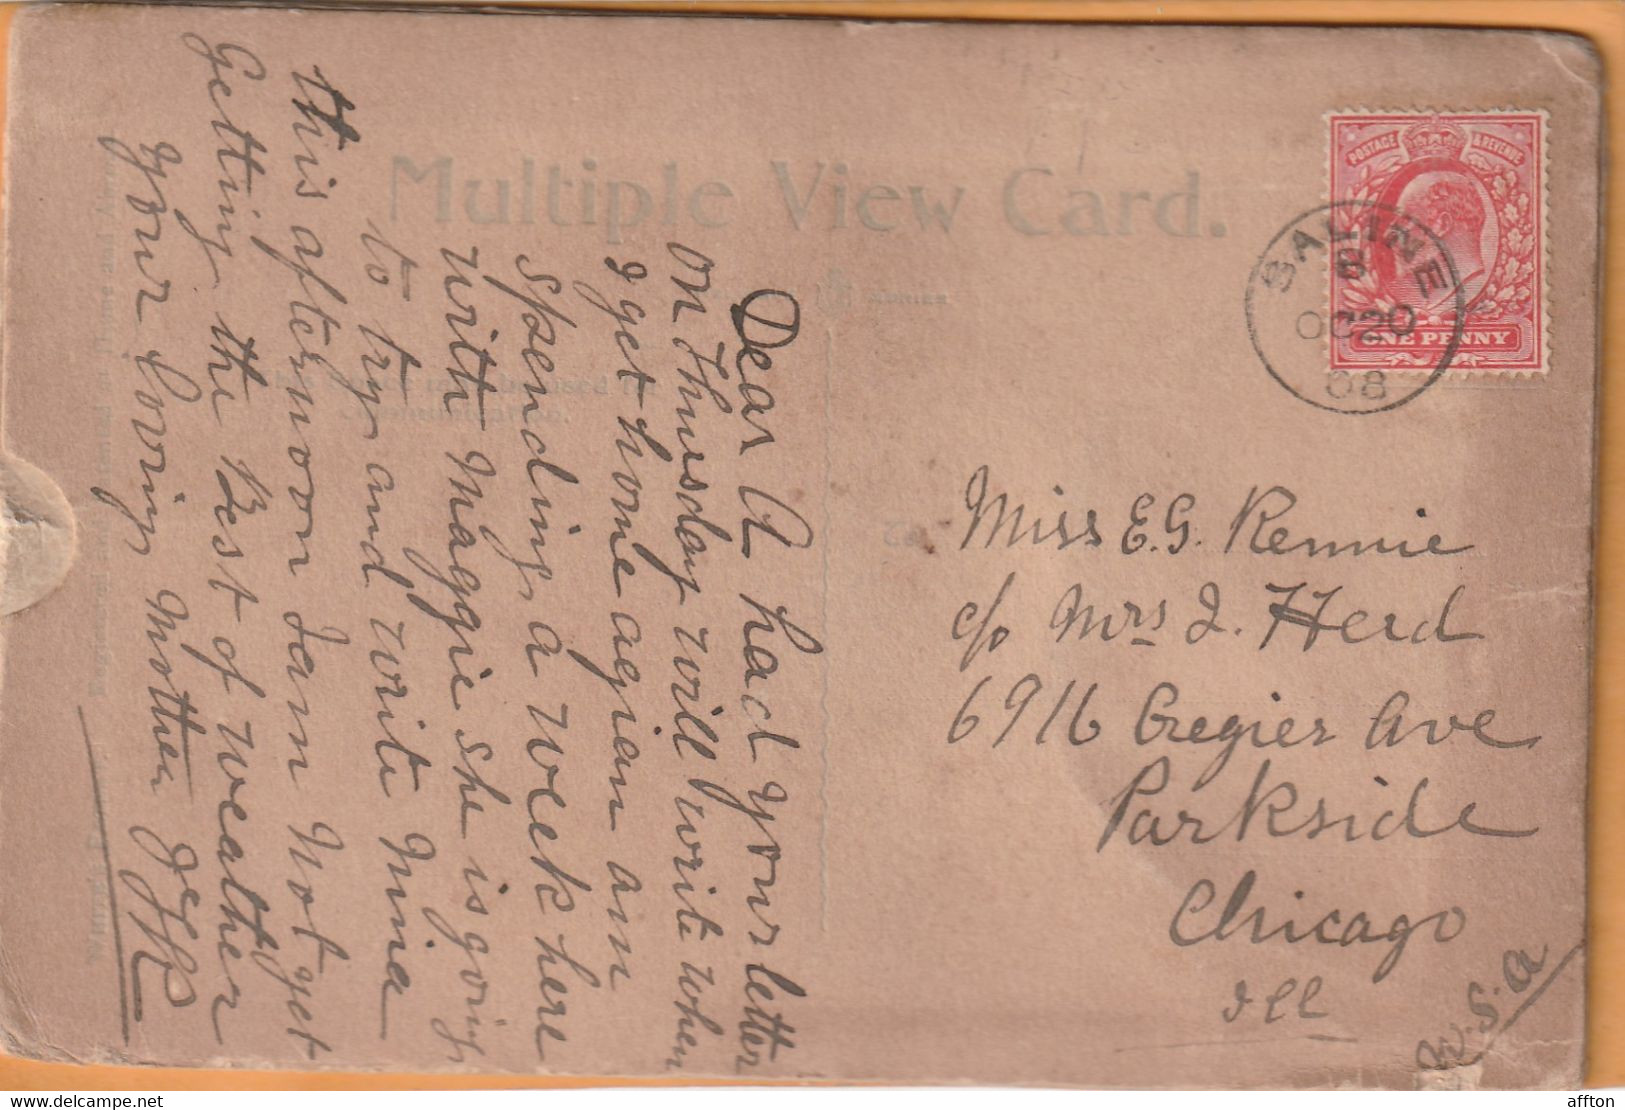 Multiple View Card.
POSTAGE
& REVENUE
ONE PENNY
SALINE
B
OC 20
08
SERIES
This Space may be used for
Communication.
Dear A had your letter
on Thursday will write when
I get home agien am
spending a week here
with Maggie she is going
to try and write Mina
this afternoon Jam Not yet
getting the Best of weather
your Loving Mother
To
Miss E.G. Rennie
c/o Mrs J. Herd
6916 Cregier Ave
Parkside
Chicago
Ill
U.S.A
delcampe.net
affton